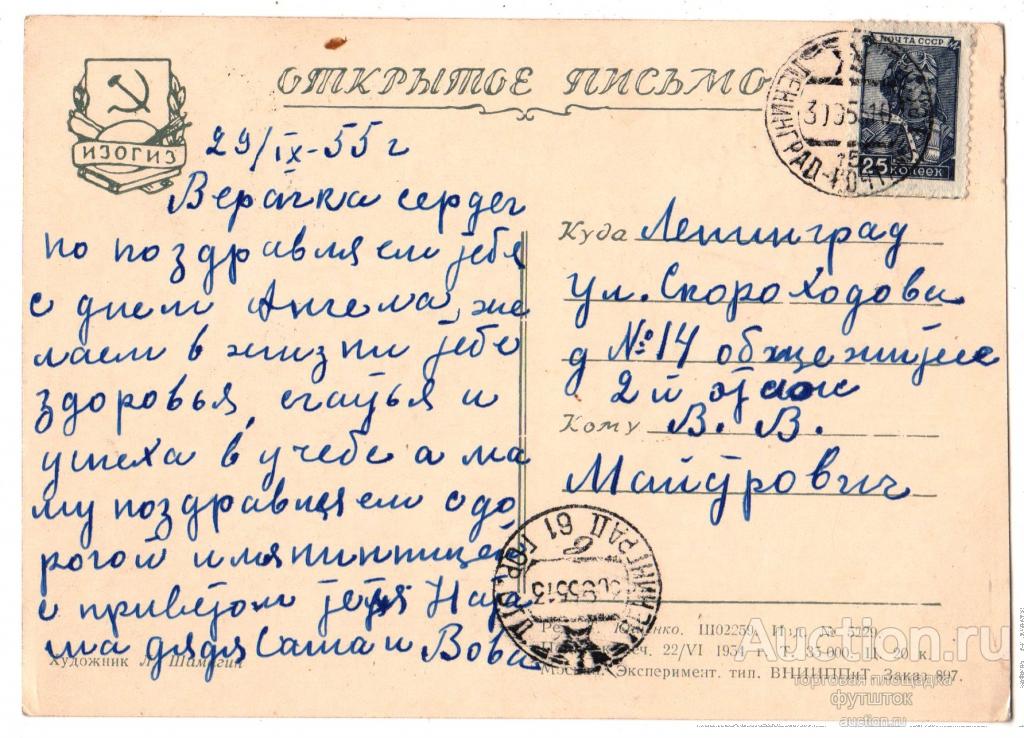 ОТКРЫТОЕ ПИСЬМО
ИЗОГИЗ
ПОЧТА СССР
25 КОПЕЕК
29/IX-55 г
Верачка сердеч
но поздравляем тебя
с днем Ангела, же
лаем в жизни тебе
здоровья, счастья и
успеха в учебе а ма
му поздравляем с до
рогой имянинницей
с приветом тетя Ната
ша дядя Саша и Вова
Куда Ленинград
ул. Скороходова
д №14 общежитие
2й этаж
Кому В. В.
Майурович
ЛЕНИНГРАД 61 ГОР
Художник Л. Шамагин
Ш02259. Изд. № 5229.
22/VI 1954 г. Т. 35.000. Ц. 20 к.
Москва. Эксперимент. тип. ВНИИППиТ. Заказ 897.
Auction.ru
торговая площадка
футшток
auction.ru